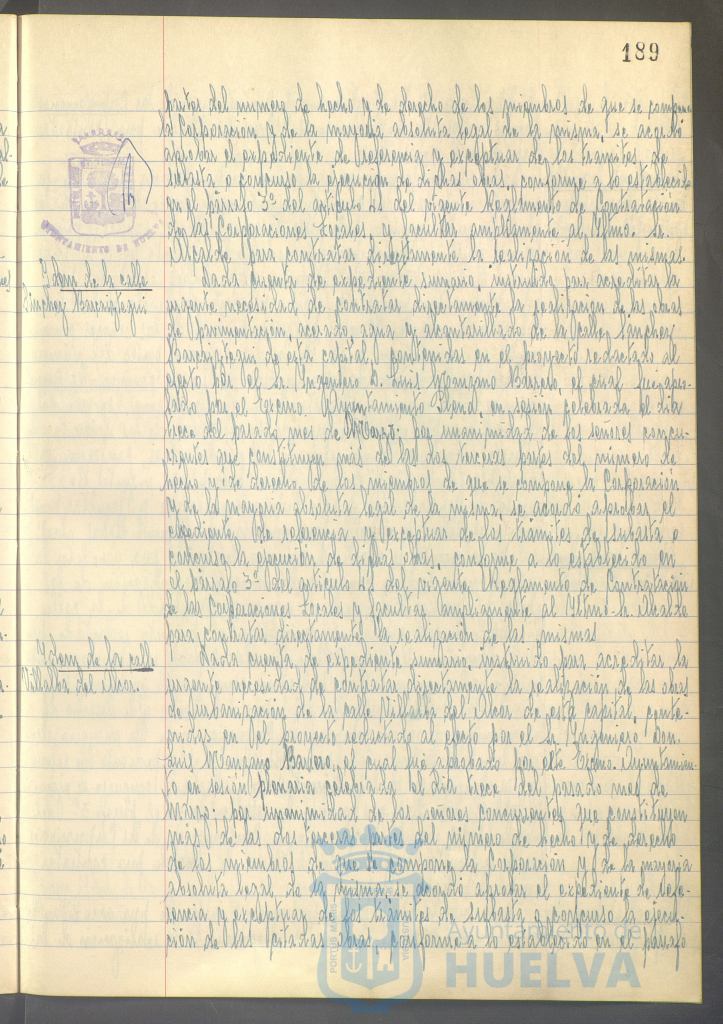 189
partes del número de hecho y de derecho de los miembros de que se compone
la Corporación y de la mayoría absoluta legal de la misma, se acordó
aprobar el expediente de referencia y exceptuar de los trámites de
subasta o concurso la ejecución de dichas obras, conforme a lo establecido
en el párrafo 3º del artículo 41 del vigente Reglamento de Contratación
de las Corporaciones Locales, y facultar ampliamente al Iltmo. Sr.
Alcalde para contratar directamente la realización de las mismas.
Idem de la calle
Sánchez Barcaiztegui
Dada cuenta de expediente sumario, instruido para acreditar la
urgente necesidad de contratar directamente la realización de las obras
de pavimentación, acerado, agua y alcantarillado de la calle Sánchez
Barcaiztegui de esta capital, contenidas en el proyecto redactado al
efecto por el Sr. Ingeniero D. Luis Manzano Barrero, el cual fue apro-
bado por el Excmo. Ayuntamiento Pleno, en sesión celebrada el día
trece del pasado mes de Marzo; por unanimidad de los señores concu-
rrentes que constituyen más de las dos terceras partes del número de
hecho y de derecho de los miembros de que se compone la Corporación
y de la mayoría absoluta legal de la misma, se acordó aprobar el
expediente de referencia y exceptuar de los trámites de subasta o
concurso la ejecución de dichas obras, conforme a lo establecido en
el párrafo 3º del artículo 41 del vigente Reglamento de Contratación
de las Corporaciones Locales y facultar ampliamente al Iltmo. Sr. Alcalde
para contratar directamente la realización de las mismas
Idem de la calle
Villalba del Alcor.
Dada cuenta de expediente sumario, instruido para acreditar la
urgente necesidad de contratar directamente la realización de las obras
de urbanización de la calle Villalba del Alcor de esta capital, conte-
nidas en el proyecto redactado al efecto por el Sr. Ingeniero Don
Luis Manzano Barrero, el cual fué aprobado por este Excmo. Ayuntamien-
to en sesión plenaria celebrada el día trece del pasado mes de
Marzo; por unanimidad de los señores concurrentes que constituyen
más de las dos terceras partes del número de hecho y de derecho
de los miembros de que se compone la Corporación y de la mayoría
absoluta legal de la misma, se acordó aprobar el expediente de refe-
rencia y exceptuar de los trámites de subasta o concurso la ejecu-
ción de las citadas obras, conforme a lo establecido en el párrafo
AYUNTAMIENTO DE HUELVA
Ayuntamiento de
HUELVA